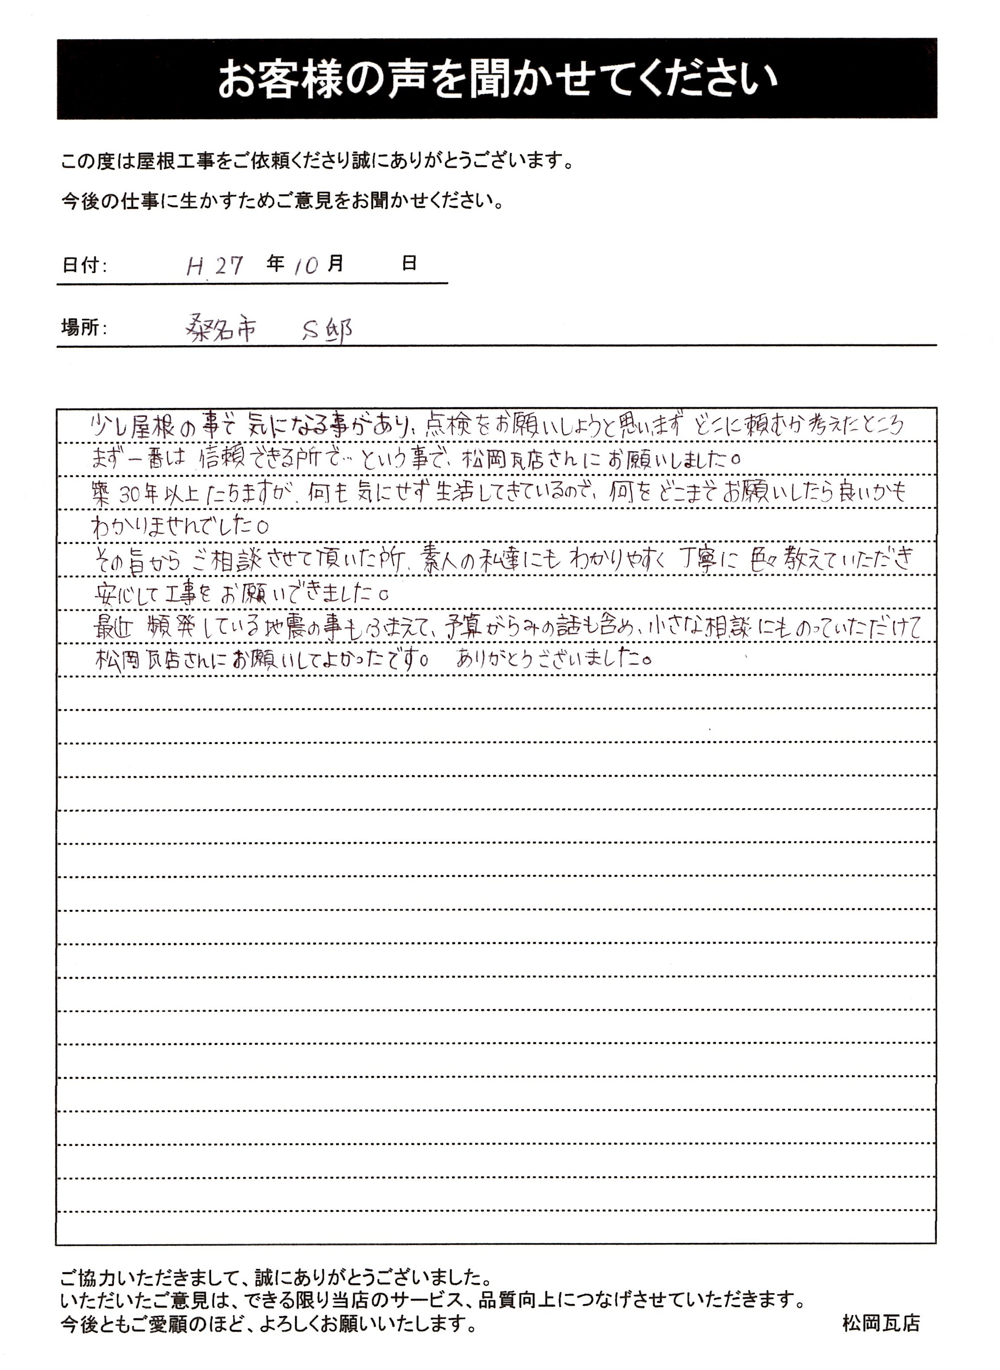 お客様の声を聞かせてください
この度は屋根工事をご依頼くださり誠にありがとうございます。
今後の仕事に生かすためご意見をお聞かせください。
日付: H.27 年 10 月 日
場所: 桑名市 S邸
少し屋根の事で気になる事があり、点検をお願いしようと思いまず どこに頼むか考えたところ
まず一番は 信頼できる所で…という事で、松岡瓦店さんにお願いしました。
築30年以上たちますが、何も気にせず生活してきているので、何をどこまでお願いしたら良いかも
わかりませんでした。
その旨から ご相談させて頂いた所、素人の私達にも わかりやすく 丁寧に 色々教えていただき
安心して工事をお願いできました。
最近 頻発している地震の事もふまえて、予算がらみの話も含め、小さな相談にものっていただけて
松岡瓦店さんにお願いしてよかったです。 ありがとうございました。
ご協力いただきまして、誠にありがとうございました。
いただいたご意見は、できる限り当店のサービス、品質向上につなげさせていただきます。
今後ともご愛顧のほど、よろしくお願いいたします。 松岡瓦店